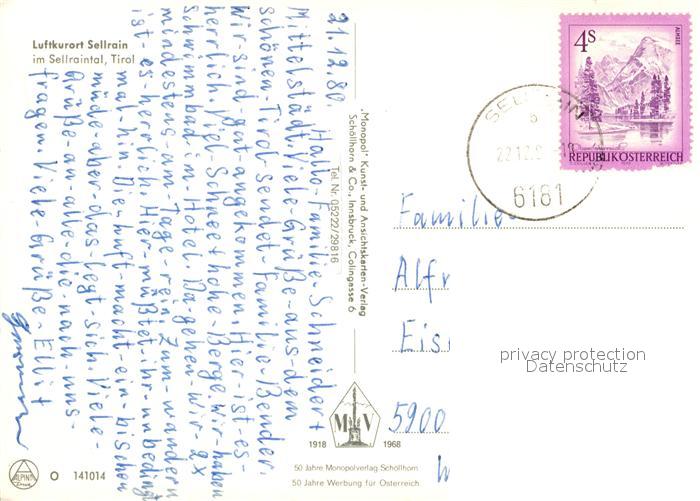 Luftkurort Sellrain
im Sellraintal, Tirol
21.12.80.
Hallo-Familie-Schneider+
Mittelstädt. Viele-Grüße-aus-dem
schönen-Tirol-sendet-Familie-Bender.
Wir-sind-gut-angekommen. Hier-ist-es-
herrlich. Vigl-Schnee+hohe-Berge. Wir-haben
schwimmbad-im-Hotel. Da-gehen-wir 2x
mindestens-am-Tage-rein. Zum-wandern
ist-es-herrlich. Hier-müßtet-ihr-unbedingt
mal-hin. Die-Luft-macht-ein-bischen
müde-aber-das-legt-sich. Viele-
Grüße-an-alle-die-nach-uns-
fragen. Viele-Grüße-Elli+
„Monopol“-Kunst- und Ansichtskarten-Verlag
Schöllhorn & Co., Innsbruck, Colingasse 6
Tel. Nr. 05222/29816
4S
ALMSEE
REPUBLIK ÖSTERREICH
SELLRAIN
a
22.12.8
18
6181
Familie
Alfr
Eis
5900
privacy protection
Datenschutz
MV
1918
1968
50 Jahre Monopolverlag Schöllhorn
50 Jahre Werbung für Österreich
ALPINA
Druck
O 141014